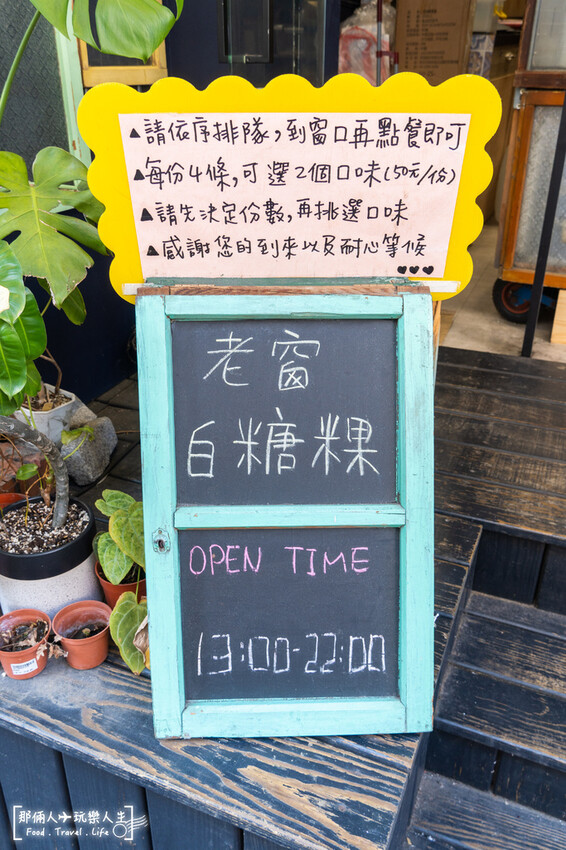 ▲請依序排隊，到窗口再點餐即可
▲每份4條，可選2個口味(50元/份)
▲請先決定份數，再挑選口味
▲感謝您的到來以及耐心等候
♥♥♥
老窗
白糖粿
OPEN TIME
13:00-22:00
那倆人玩樂人生
Food . Travel . Life